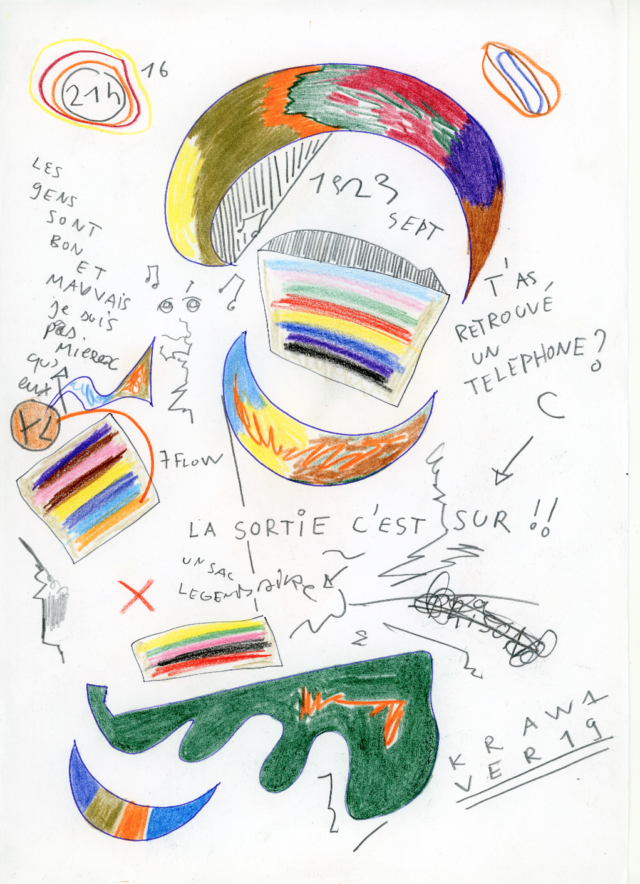 21h
16
1923
SEPT
LES
gENS
SONT
BON
ET
MAUVAIS
je suis
pas
MiEREX
qu'
eux
T'AS
RETROUVÉ
UN
TELEPHONE?
7FLOW
LA SORTIE C'EST SUR !!
UN SAC
LEGENDAIRE
2
KRAW1
VER19